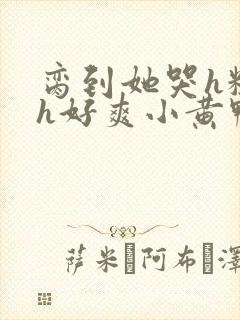 脔到她哭h粗
h好爽小黄鸭
萨米 阿布 澤